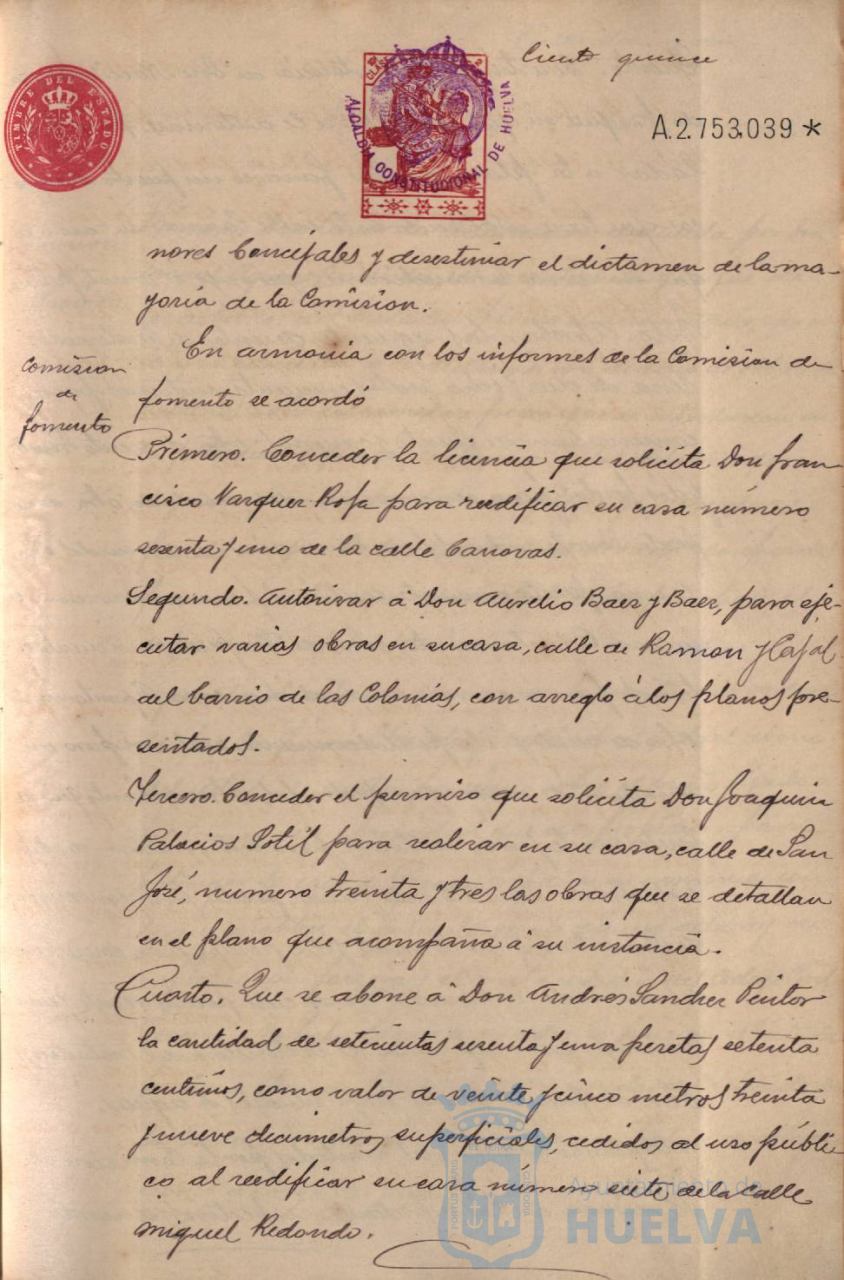 Ciento quince
TIMBRE DEL ESTADO
ALCALDIA CONSTITUCIONAL DE HUELVA
A.2.753.039 *
nores Concejales y desestimar el dictamen de la ma-
yoria de la Comision.
En armonia con los informes de la Comision de
fomento se acordó
Comision
de
fomento
Primero. Conceder la licencia que solicita Don Fran
cisco Vazquez Rofa para reedificar su casa número
sesenta y uno de la calle Canovas.
Segundo. Autorizar á Don Aurelio Baez y Baez, para eje-
cutar varias obras en su casa, calle de Ramon y Cajal
del barrio de las Colonias, con arreglo á los planos pre-
sentados.
Tercero. Conceder el permiso que solicita Don Joaquin
Palacios para realizar en su casa, calle de San
José, numero treinta y tres las obras que se detallan
en el plano que acompaña á su instancia.
Cuarto. Que se abone á Don Andrés Sanchez Pintor
la cantidad de setecientas sesenta y una pesetas setenta
centimos, como valor de veinte y cinco metros treinta
y nueve decimetros superficiales, cedidos al uso públi-
co al reedificar su casa número siete de la calle
Miguel Redondo.
Ayuntamiento de
HUELVA